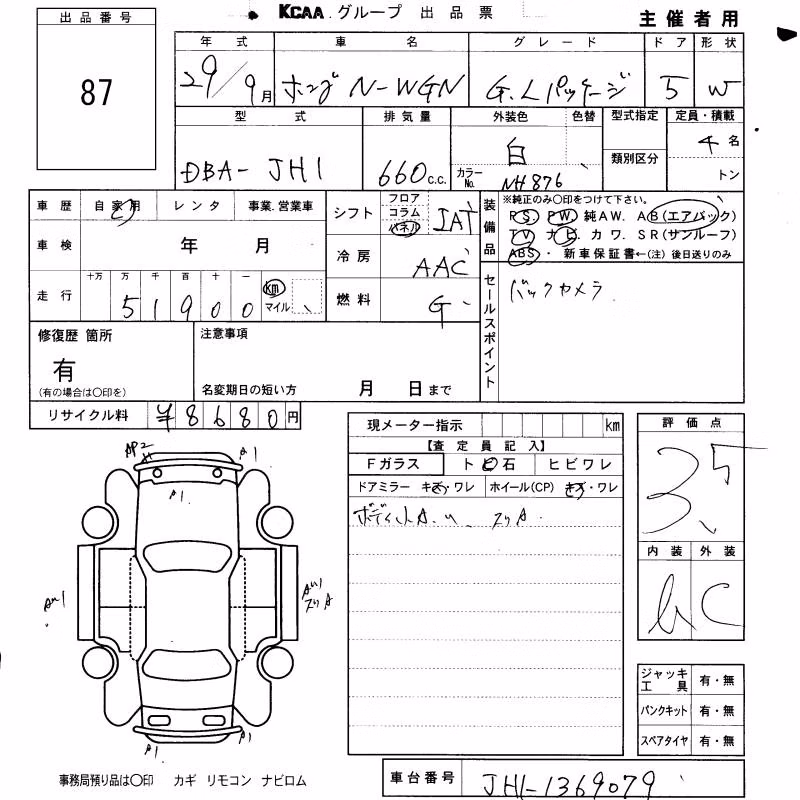 KCAA グループ 出品票
主催者用
出品番号
87
年式 車名 グレード ドア 形状
29/9月 ホンダ N-WGN G.Lパッケージ 5 W
型式 排気量 外装色 色替 型式指定 定員・積載
DBA-JH1 660 C.C. 白 4名
カラーNo. NH876 類別区分 トン
車歴 自家用 レンタ 事業.営業車
シフト フロア コラム パネル IAT
装備品 ※純正のみ○印をつけて下さい。
P.S. P.W. 純AW. A.B(エアバック)
TV ナビ カワ. SR(サンルーフ)
ABS・ 新車保証書←(注) 後日送りのみ
車検 年 月
冷房 AAC
走行 十万 万 千 百 十 一
51900 km マイル
燃料 G
セールスポイント
バックカメラ
修復歴 箇所 注意事項
有
(有の場合は○印を) 名変期日の短い方 月 日まで
リサイクル料 ¥8680円
現メーター指示 km
【査定員記入】
Fガラス トビ石 ヒビワレ
ドアミラー キズ・ワレ ホイール(CP) キズ・ワレ
評価点
3.5
内装 外装
C
AP2 A1
A1.
A1
A1.
A1
ジャッキ工具 有・無
パンクキット 有・無
スペアタイヤ 有・無
事務局預り品は○印 カギ リモコン ナビロム
車台番号 JH1-1369079